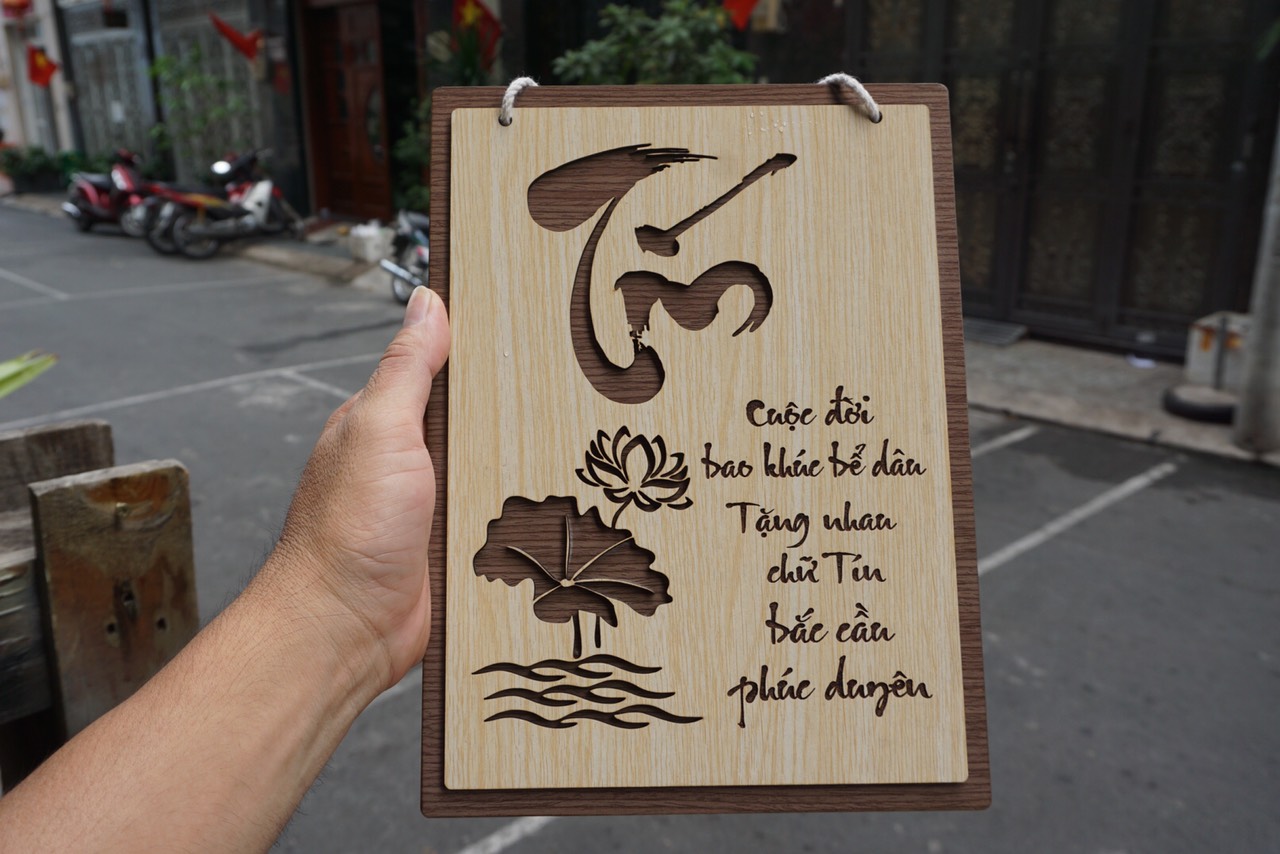 Tín
Cuộc đời
bao khúc bể dâu
Tặng nhau
chữ Tín
bắc cầu
phúc duyên